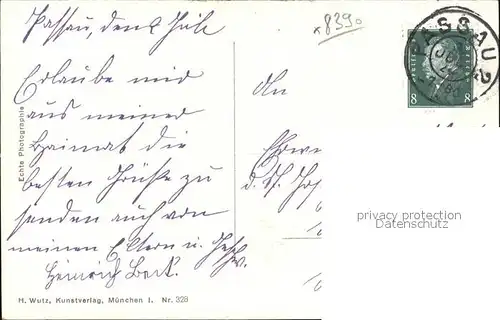 Passau, den 6 Juli
x8390
PASSAU 2
8 8
Erlaube mir
aus meiner
Heimat die
besten Grüße zu
senden auch von
meinen Eltern u. Gesch
Heinrich Beck.
An
Echte Photographie
privacy protection
Datenschutz
H. Wutz, Kunstverlag, München I. Nr. 328